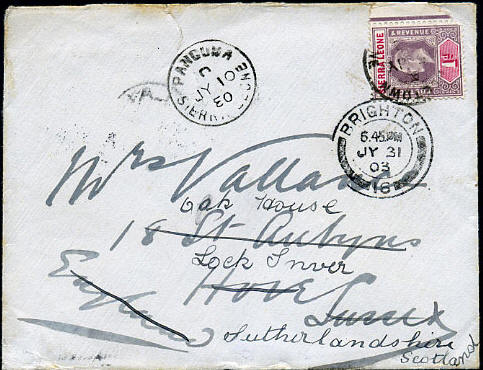 PANGUMA
C
JY 10
03
SIERRA LEONE
& REVENUE
SIERRA LEONE
1d
BRIGHTON
6.45 PM
JY 31
03
16
Mrs Vallance
Oak House
18 St Aubyns
Lock Inver
Hove
England
Sussex
Sutherlandshire
Scotland